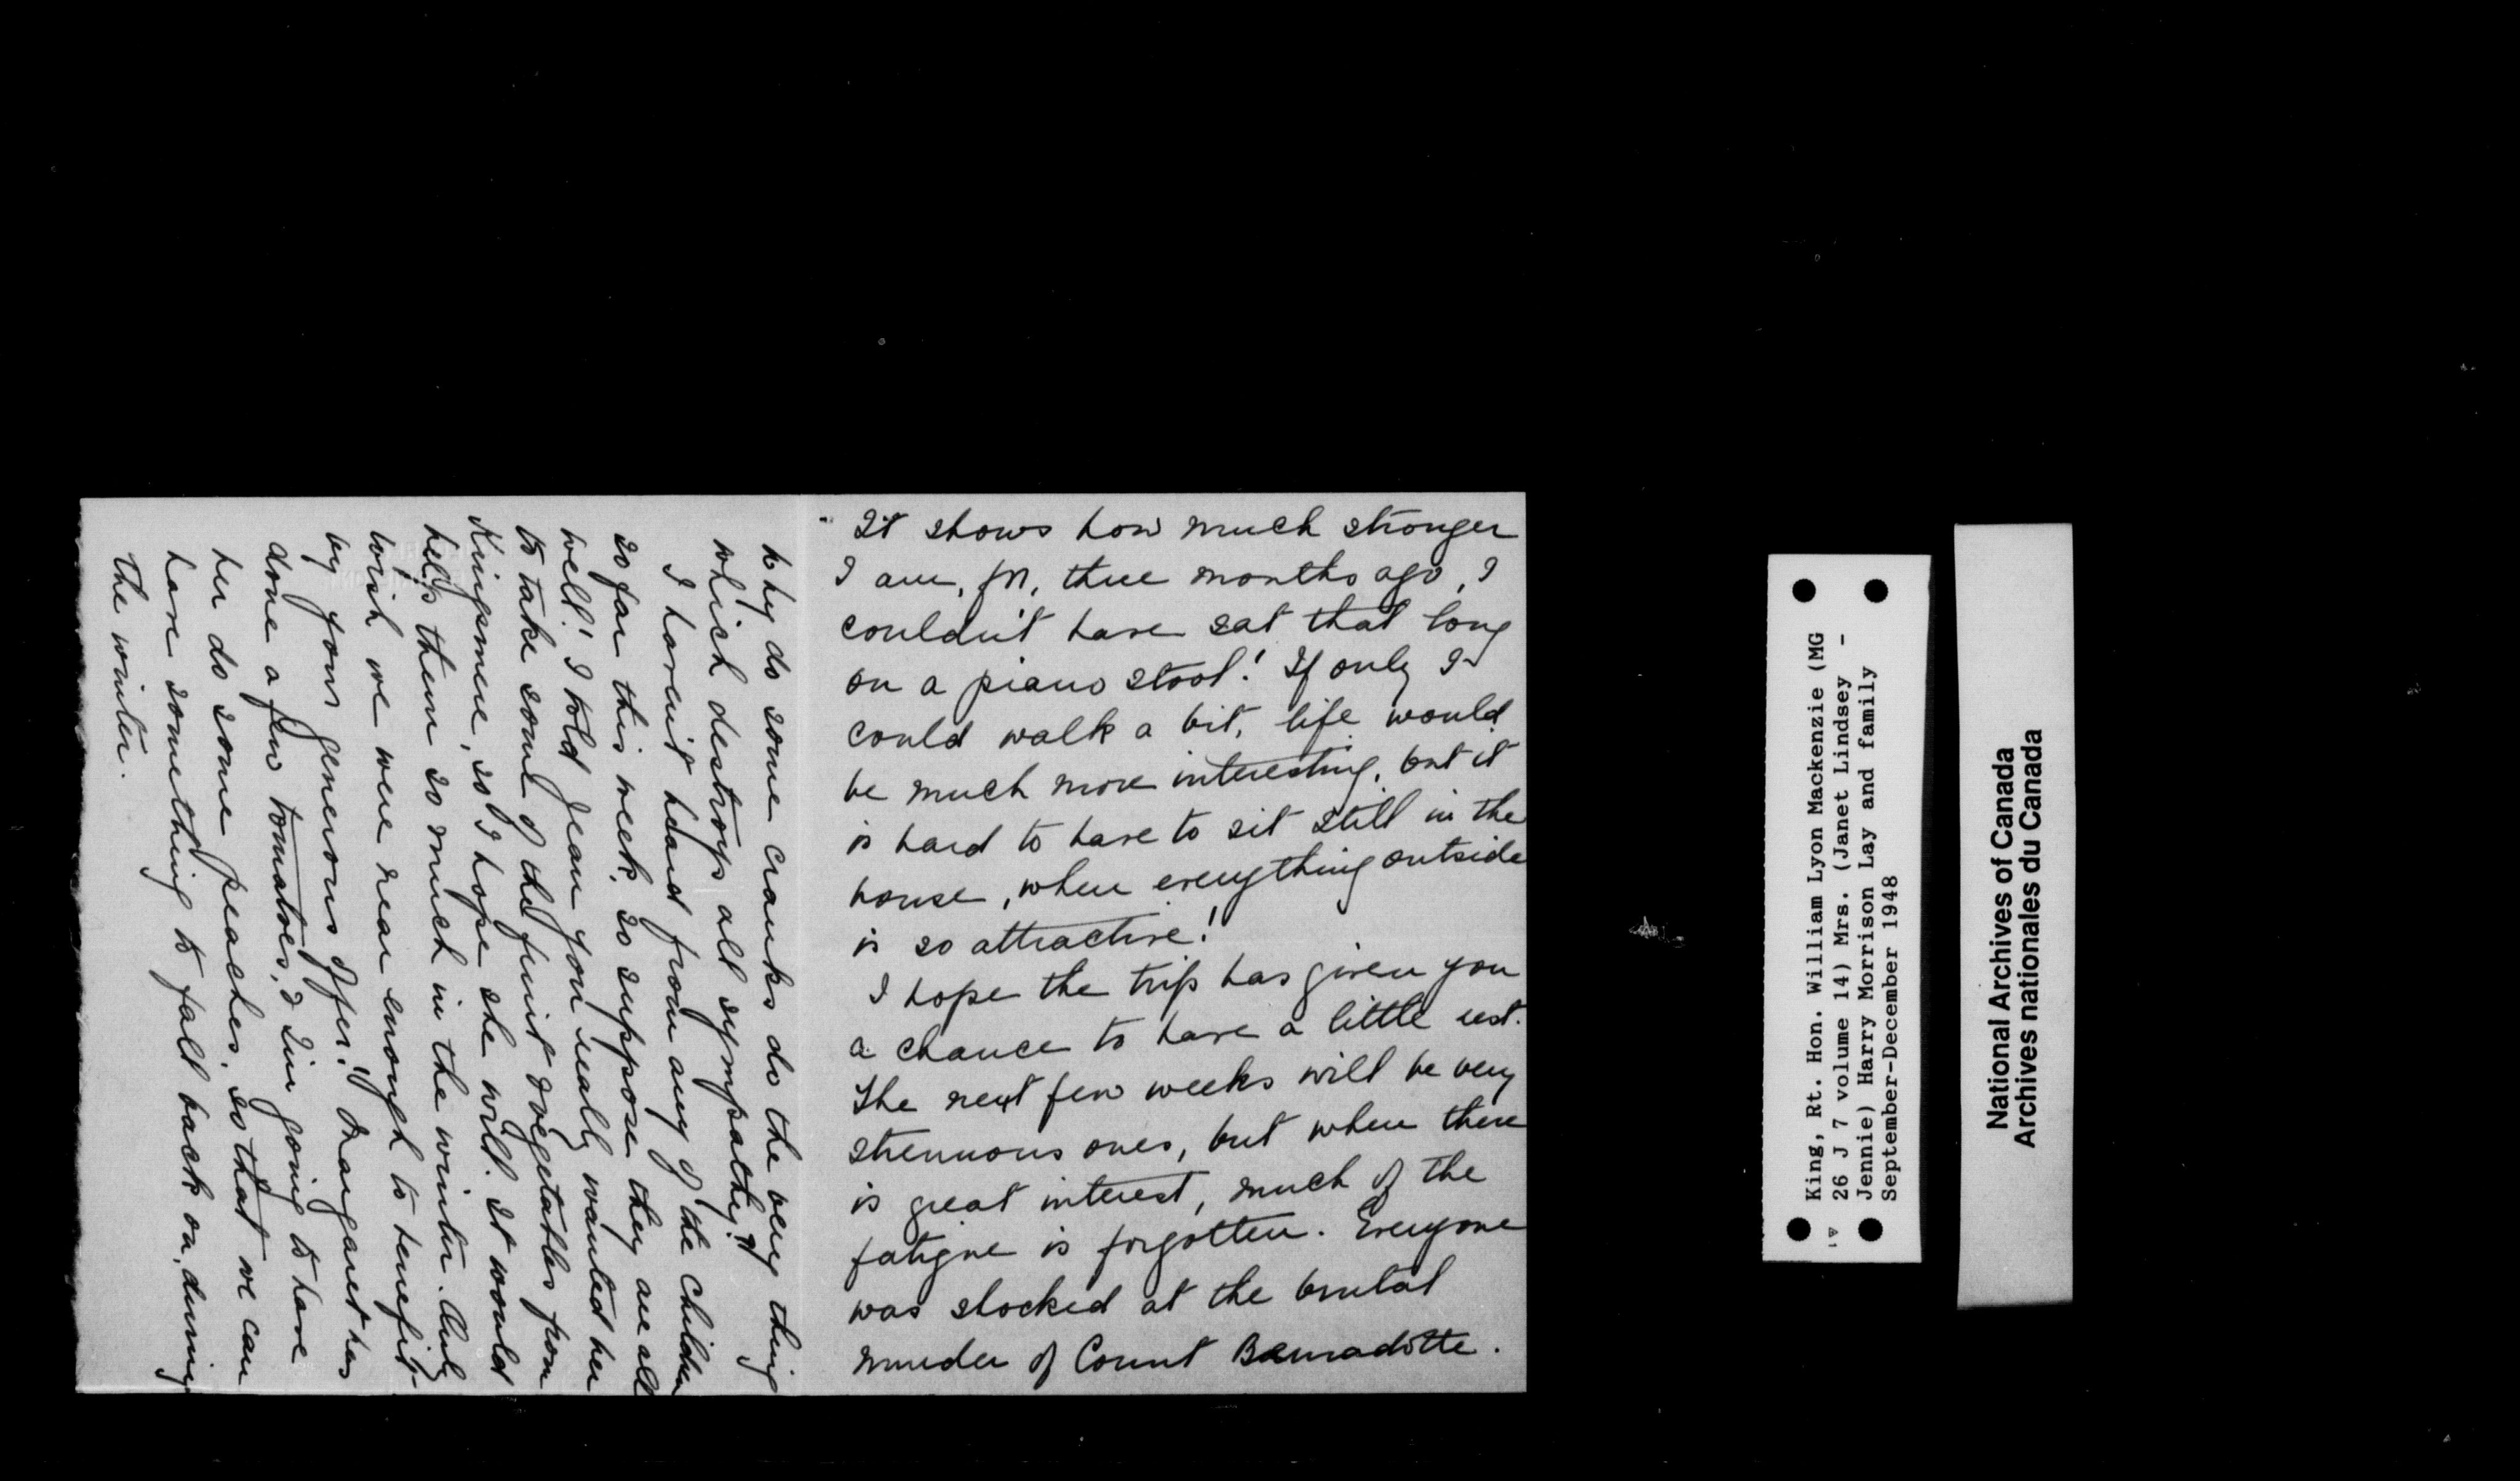 It shows how much stronger
I am, for, three months ago, I
couldn't have sat that long
on a piano stool! If only I
could walk a bit, life would
be much more interesting, but it
is hard to have to sit still in the
house, when everything outside
is so attractive!
I hope the trip has given you
a chance to have a little rest.
The next few weeks will be very
strenuous ones, but when there
is great interest, much of the
fatigue is forgotten. Everyone
was shocked at the brutal
murder of Count Bernadotte.
Why do some cranks do the very thing
which destroys all sympathy?
I haven't heard from any of the children
so far this week, so suppose they are all
well! I told Jean you really wanted her
to take some of the fruit & vegetables from
Kingsmere, so I hope she will. It would
help them so much in the winter. Only
wish we were near enough to benefit
by your generous offer! Margaret has
done a few tomatoes, & I'm going to have
her do some peaches, so that we can
have something to fall back on, during
the winter.
King, Rt. Hon. William Lyon Mackenzie (MG
26 J 7 volume 14) Mrs. (Janet Lindsey -
Jennie) Harry Morrison Lay and family
September-December 1948
National Archives of Canada
Archives nationales du Canada